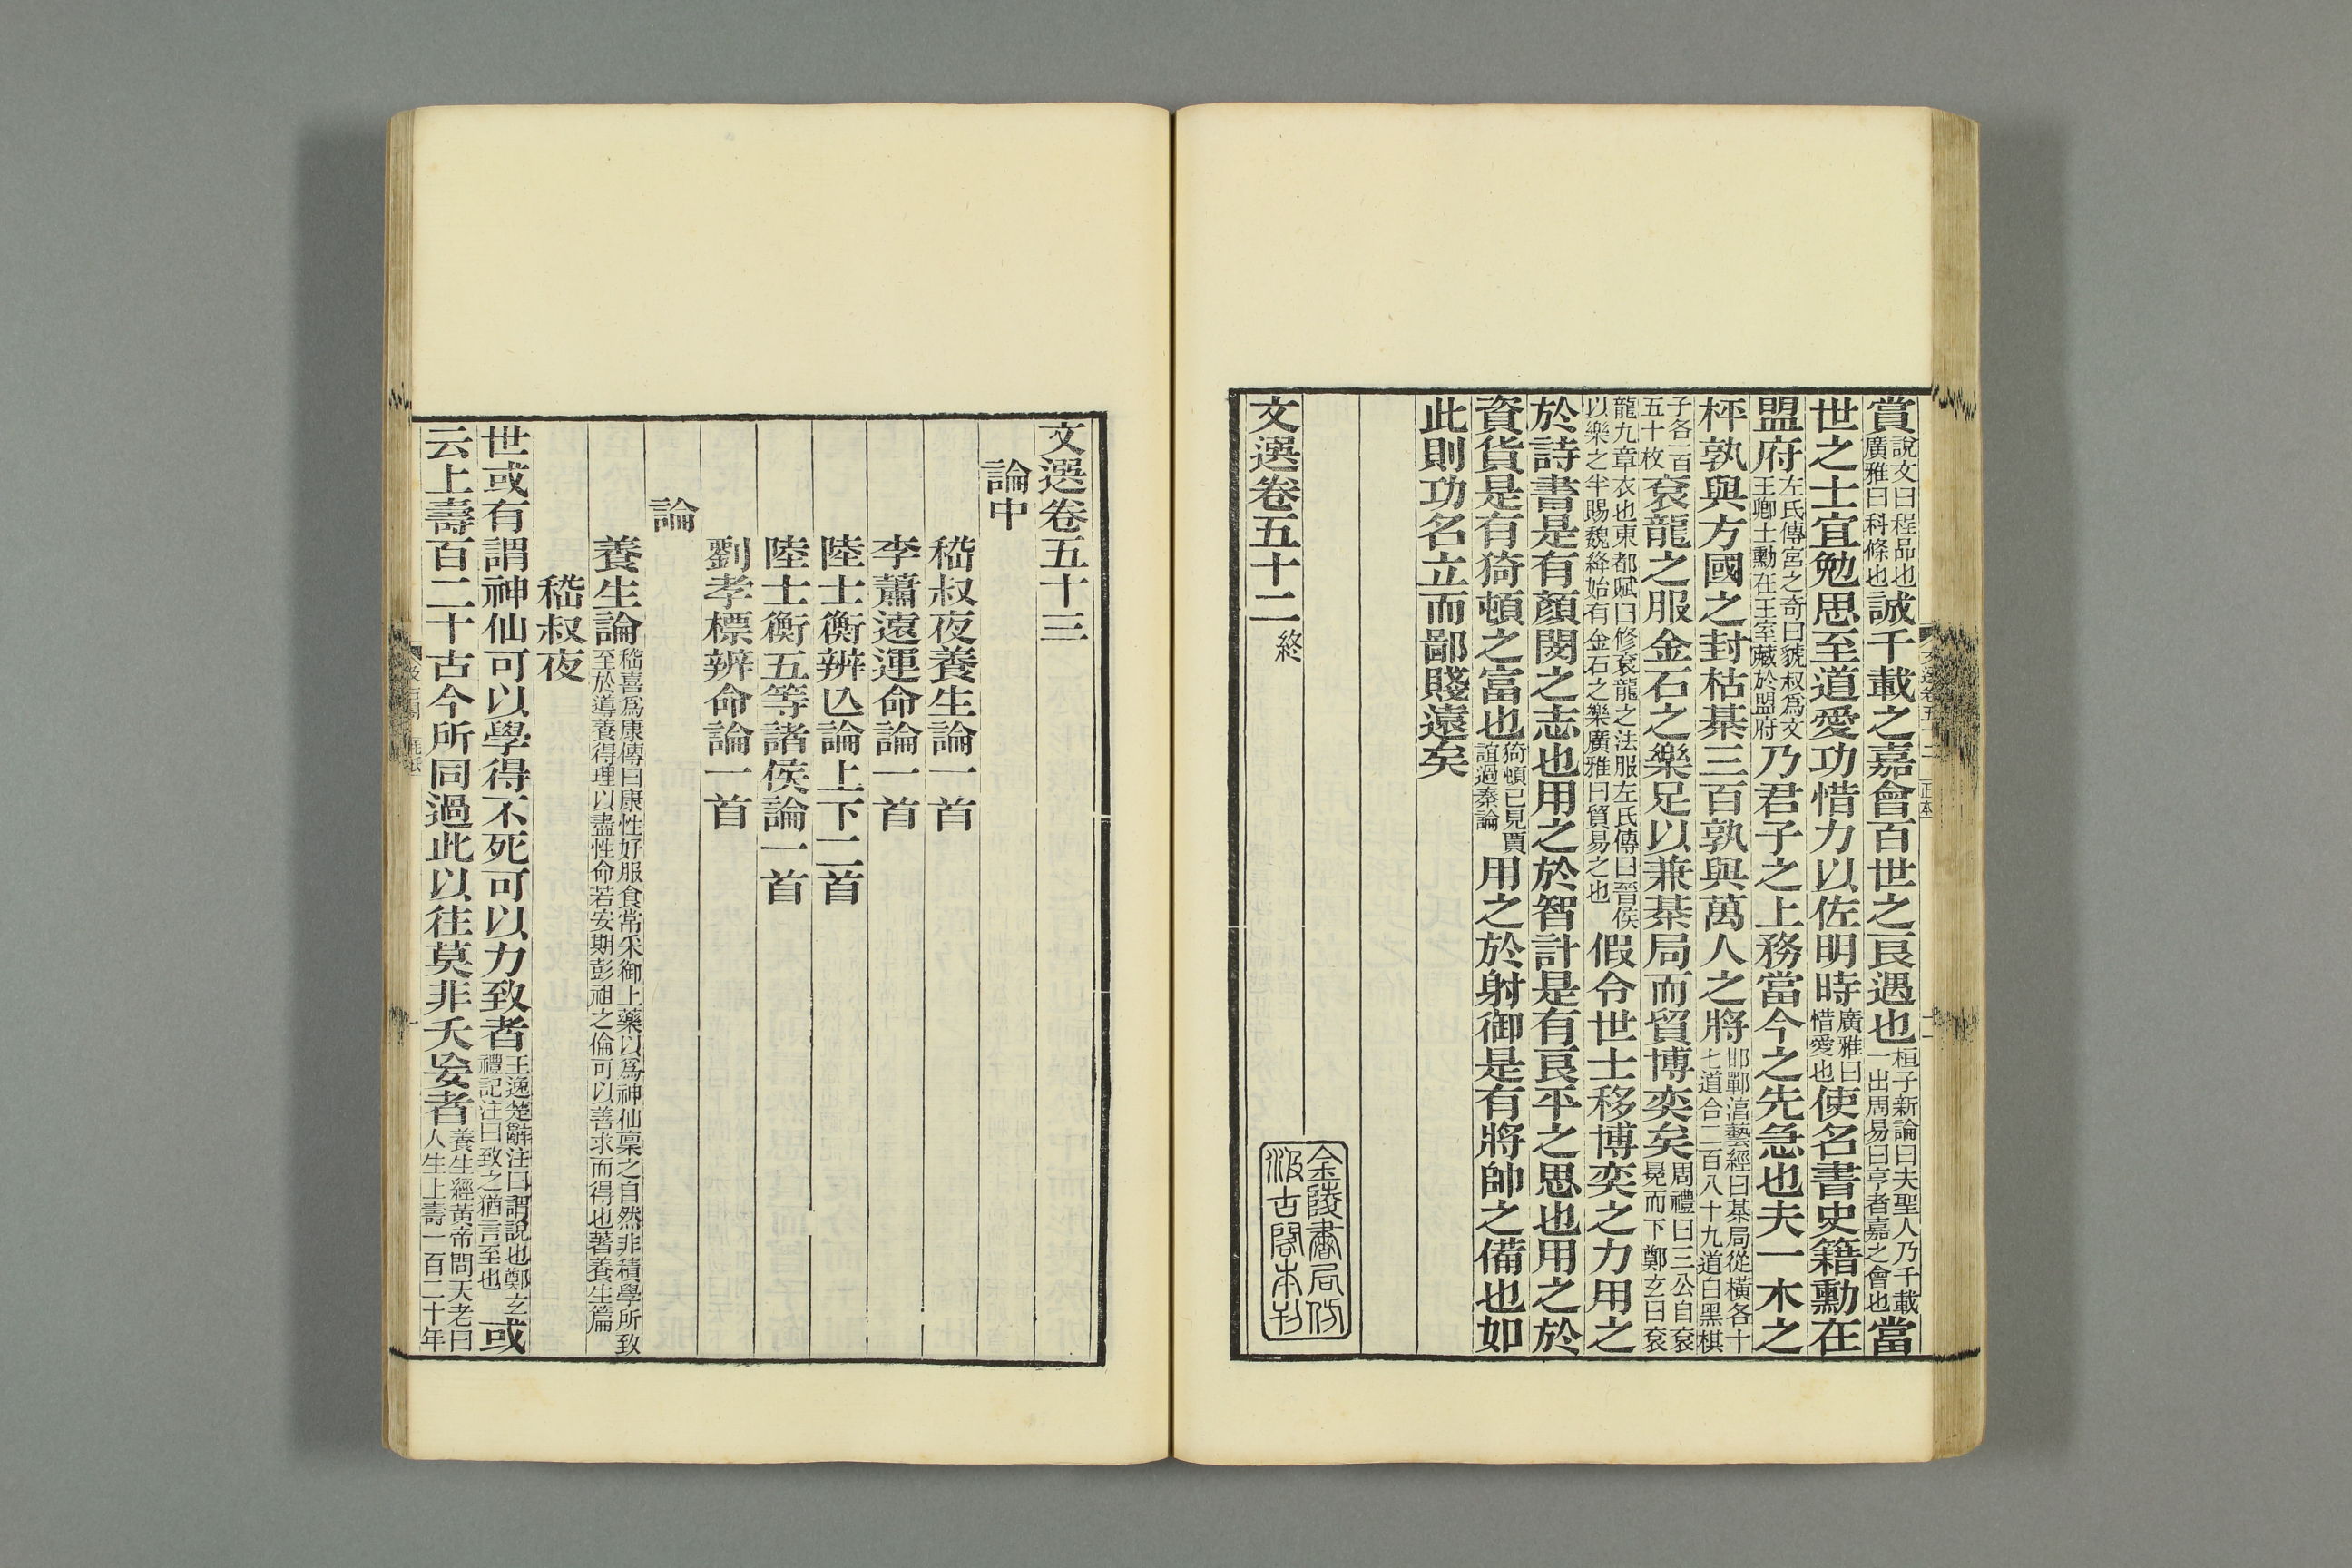 賞說文曰程品也廣雅曰科條也誠千載之嘉會百世之良遇也桓子新論曰夫聖人乃千載一出周易曰亨者嘉之會也當
世之士宜勉思至道愛功惜力以佐明時廣雅曰惜愛也使名書史籍勳在
盟府左氏傳宮之奇曰虢叔爲文王卿士勳在王室藏於盟府乃君子之上務當今之先急也夫一木之
枰孰與方國之封枯棊三百孰與萬人之將邯鄲淳藝經曰棊局從橫各十七道合二百八十九道白黑棋
子各一百五十枚袞龍之服金石之樂足以兼棊局而貿博奕矣周禮曰三公自袞冕而下鄭玄曰袞
龍九章衣也東都賦曰修袞龍之法服左氏傳曰晉侯以樂之半賜魏絳始有金石之樂廣雅曰貿易之也假令世士移博奕之力用之
於詩書是有顏閔之志也用之於智計是有良平之思也用之於
資貨是有猗頓之富也猗頓已見賈誼過秦論用之於射御是有將帥之備也如
此則功名立而鄙賤遠矣
文選卷五十二終
金陵書局仿
汲古閣本刊
文選卷五十三
論中
嵇叔夜養生論一首
李蕭遠運命論一首
陸士衡辨亾論上下二首
陸士衡五等諸侯論一首
劉孝標辨命論一首
論
養生論嵇喜爲康傳曰康性好服食常采御上藥以爲神仙稟之自然非積學所致至於導養得理以盡性命若安期彭祖之倫可以善求而得也著養生篇
嵇叔夜
世或有謂神仙可以學得不死可以力致者王逸楚辭注曰謂說也鄭玄禮記注曰致之猶言至也或
云上壽百二十古今所同過此以往莫非夭妄者養生經黃帝問天老曰人生上壽一百二十年